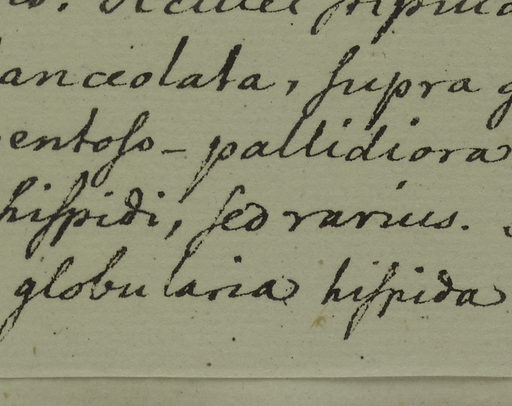 lanceolata, ſupra
entoſo-pallidiora
hiſpidi, ſed rarius.
globularia hiſpida